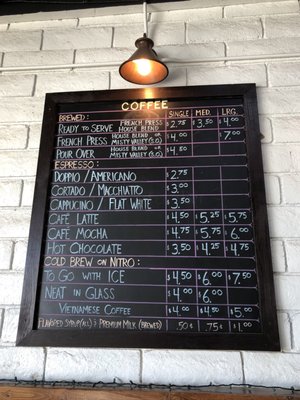 COFFEE
BREWED: SINGLE MED. LRG.
READY TO SERVE FRENCH PRESS HOUSE BLEND $2.75 $3.50 $4.00
FRENCH PRESS HOUSE BLEND OR MISTY VALLEY (S.O.) $4.00 $7.00
POUR OVER HOUSE BLEND OR MISTY VALLEY (S.O.) $4.50
ESPRESSO:
DOPPIO/AMERICANO $2.75
CORTADO/MACCHIATTO $3.00
CAPPUCINO/FLAT WHITE $3.50
CAFÉ LATTE $4.50 $5.25 $5.75
CAFÉ MOCHA $4.75 $5.75 $6.00
HOT CHOCOLATE $3.50 $4.25 $4.75
COLD BREW ON NITRO:
TO GO WITH ICE $4.50 $6.00 $7.50
NEAT IN GLASS $4.00 $6.00
VIETNAMESE COFFEE $4.00 $4.50 $5.00
FLAVORED SYRUP (ALL) & PREMIUM MILK (BREWED) .50¢ .75¢ $1.00